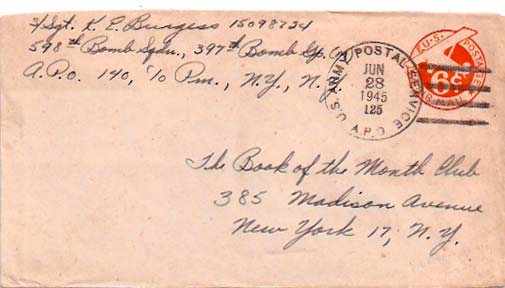 S/Sgt. K. E. Burgess 15098734
598th Bomb Sqdn., 397th Bomb Gp. (M)
A.P.O. 140, c/o P.m., N.Y., N.Y.
U.S. ARMY POSTAL SERVICE
JUN
28
1945
125
A.P.O.
U.S. POSTAGE
6¢
AIR MAIL
The Book of the Month Club
385 Madison Avenue
New York 17, N.Y.